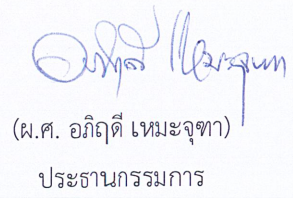 อภิฤดี เหมะจุฑา
(ผ.ศ. อภิฤดี เหมะจุฑา)
ประธานกรรมการ